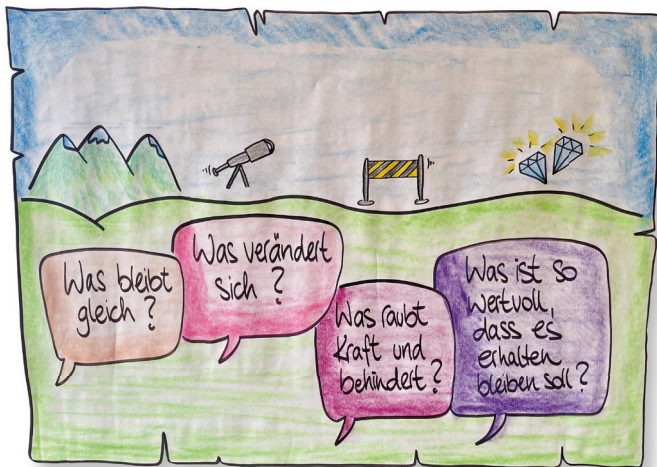 Was bleibt
gleich?
Was verändert
sich?
Was raubt
Kraft und
behindert?
Was ist so
wertvoll,
dass es
erhalten
bleiben soll?